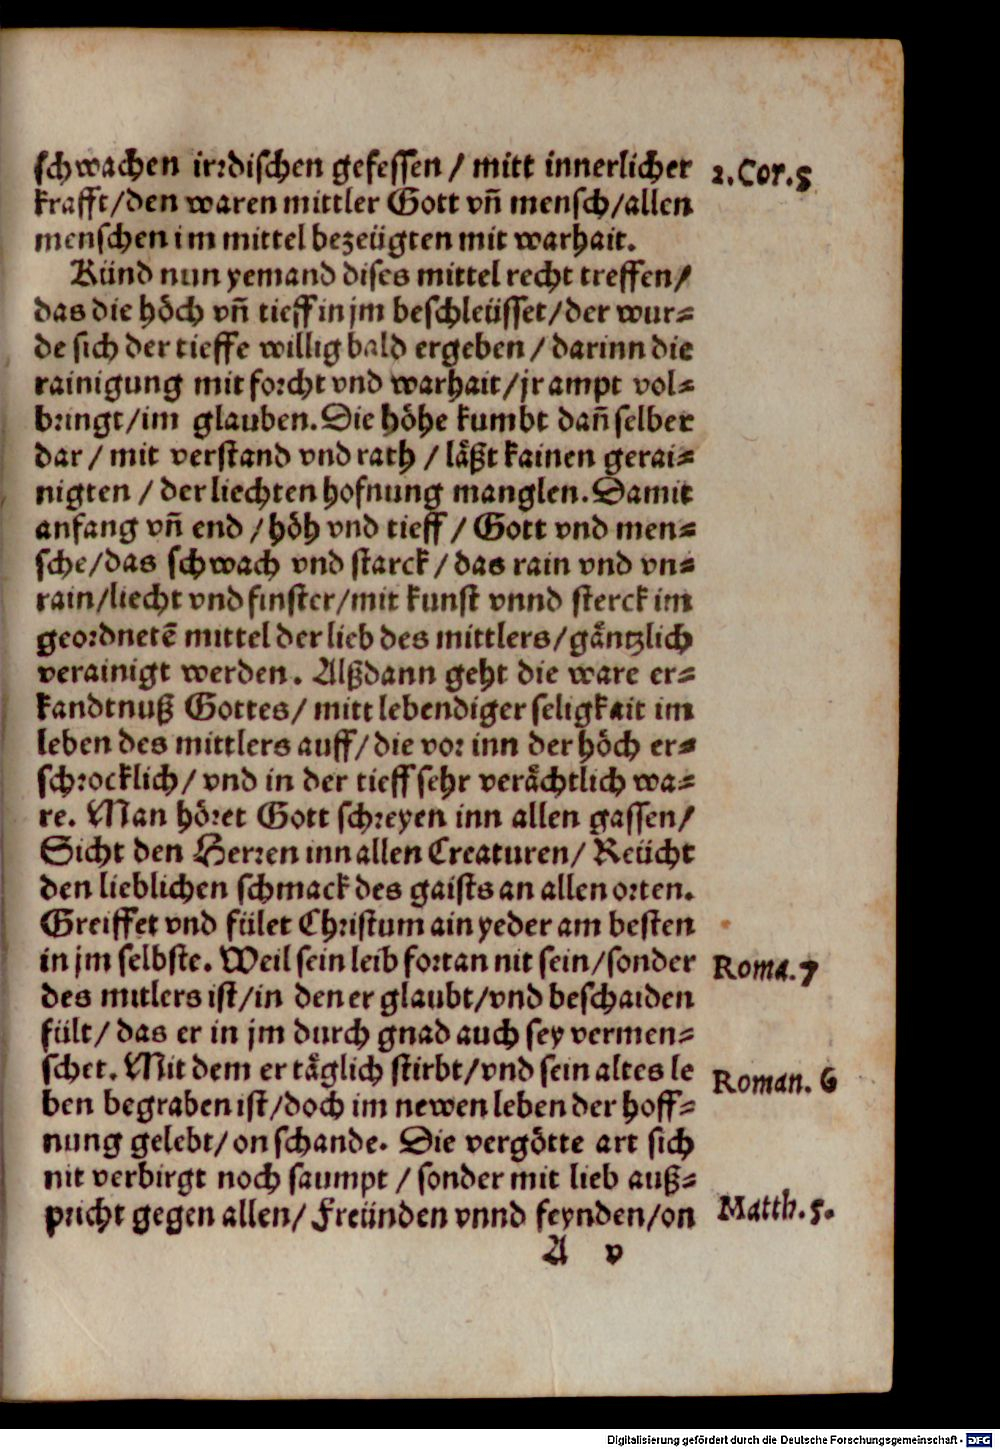 schwachen irꝛdischen gefessen / mitt innerlicher
2.Cor.5
krafft/den waren mittler Gott vñ mensch/allen
menschen im mittel bezeügten mit warhait.
Künd nun yemand dises mittel recht treffen/
das die höch vñ tieff in jm beschleüsset/der wur⸗
de sich der tieffe willig bald ergeben / darinn die
rainigung mit foꝛcht vnd warhait/jr ampt vol⸗
bꝛingt/im glauben. Die höhe kumbt dañ selber
dar / mit verstand vnd rath / läßt kainen gerai⸗
nigten / der liechten hofnung manglen. Damit
anfang vñ end / höh vnd tieff / Gott vnd men⸗
sche/das schwach vnd starck / das rain vnd vn⸗
rain/liecht vnd finster/mit kunst vnnd sterck im
geoꝛdnetē mittel der lieb des mittlers/gäntzlich
verainigt werden. Alßdann geht die ware er⸗
kandtnuß Gottes/ mitt lebendiger seligkait im
leben des mittlers auff/die voꝛ inn der höch er⸗
schꝛocklich/ vnd in der tieff sehr verächtlich wa⸗
re. Man höꝛet Gott schꝛeyen inn allen gassen/
Sicht den Herꝛen inn allen Creaturen/ Reücht
den lieblichen schmack des gaists an allen oꝛten.
Greiffet vnd fület Chꝛistum ain yeder am besten
in jm selbste. Weil sein leib foꝛtan nit sein/sonder
Roma. 7
des mitlers ist/in den er glaubt/vnd beschaiden
fült/ das er in jm durch gnad auch sey vermen⸗
schet. Mit dem er täglich stirbt/vnd sein altes le
Roman. 6
ben begraben ist/doch im newen leben der hoff⸗
nung gelebt/on schande. Die vergötte art sich
nit verbirgt noch saumpt / sonder mit lieb auß⸗
pricht gegen allen/ Freünden vnnd feynden/on
Matth. 5.
A v
Digitalisierung gefördert durch die Deutsche Forschungsgemeinschaft - DFG